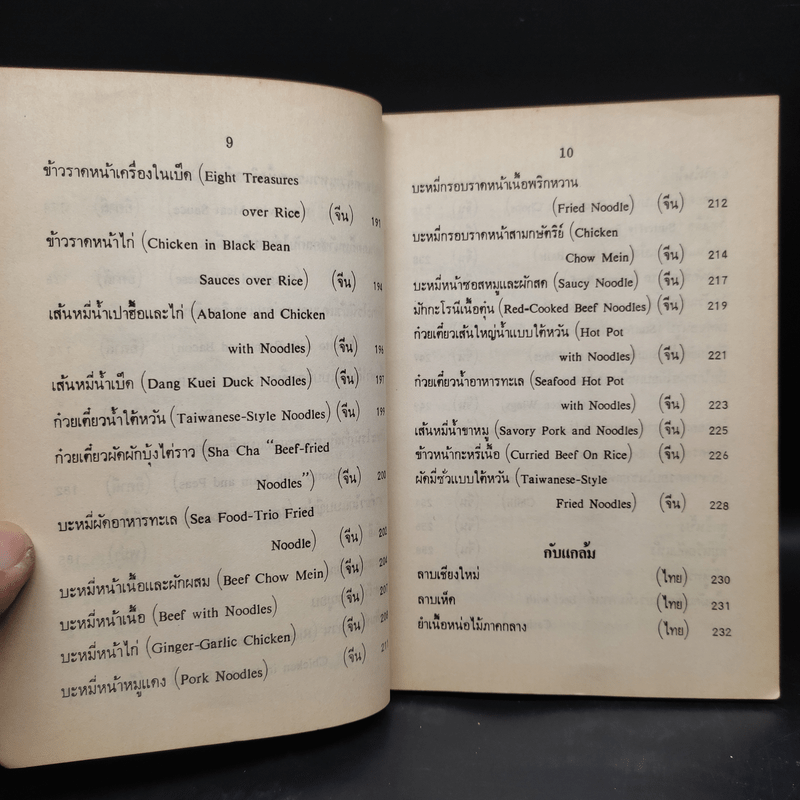 9
ข้าวราดหน้าเครื่องในเป็ด (Eight Treasures
over Rice) (จีน) 191
ข้าวราดหน้าไก่ (Chicken in Black Bean
Sauces over Rice) (จีน) 194
เส้นหมี่น้ำเปาฮื้อและไก่ (Abalone and Chicken
with Noodles) (จีน) 196
เส้นหมี่น้ำเป็ด (Dang Kuei Duck Noodles) (จีน) 197
ก๋วยเตี๋ยวน้ำใต้หวัน (Taiwanese-Style Noodles) (จีน) 199
ก๋วยเตี๋ยวผัดผักบุ้งไต่ราว (Sha Cha "Beef-fried
Noodles") (จีน) 200
บะหมี่ผัดอาหารทะเล (Sea Food-Trio Fried
Noodle) (จีน) 202
บะหมี่หน้าเนื้อและผักผสม (Beef Chow Mein) (จีน) 204
บะหมี่หน้าเนื้อ (Beef with Noodles) (จีน) 207
บะหมี่หน้าไก่ (Ginger-Garlic Chicken) (จีน)
บะหมี่หน้าหมูแดง (Pork Noodles) (จีน)
10
บะหมี่กรอบราดหน้าเนื้อพริกหวาน
(Fried Noodle) (จีน) 212
บะหมี่กรอบราดหน้าสามกษัตริย์ (Chicken
Chow Mein) (จีน) 214
บะหมี่หน้าซอสหมูและผักสด (Saucy Noodle) (จีน) 217
มักกะโรนีเนื้อตุ๋น (Red-Cooked Beef Noodles) (จีน) 219
ก๋วยเตี๋ยวเส้นใหญ่น้ำแบบใต้หวัน (Hot Pot
with Noodles) (จีน) 221
ก๋วยเตี๋ยวน้ำอาหารทะเล (Seafood Hot Pot
with Noodles) (จีน) 223
เส้นหมี่น้ำขาหมู (Savory Pork and Noodles) (จีน) 225
ข้าวหน้ากะหรี่เนื้อ (Curried Beef On Rice) (จีน) 226
ผัดมี่ซั่วแบบใต้หวัน (Taiwanese-Style
Fried Noodles) (จีน) 228
กับแกล้ม
ลาบเชียงใหม่ (ไทย) 230
ลาบเห็ด (ไทย) 231
ยำเนื้อหน่อไม้ภาคกลาง (ไทย) 232